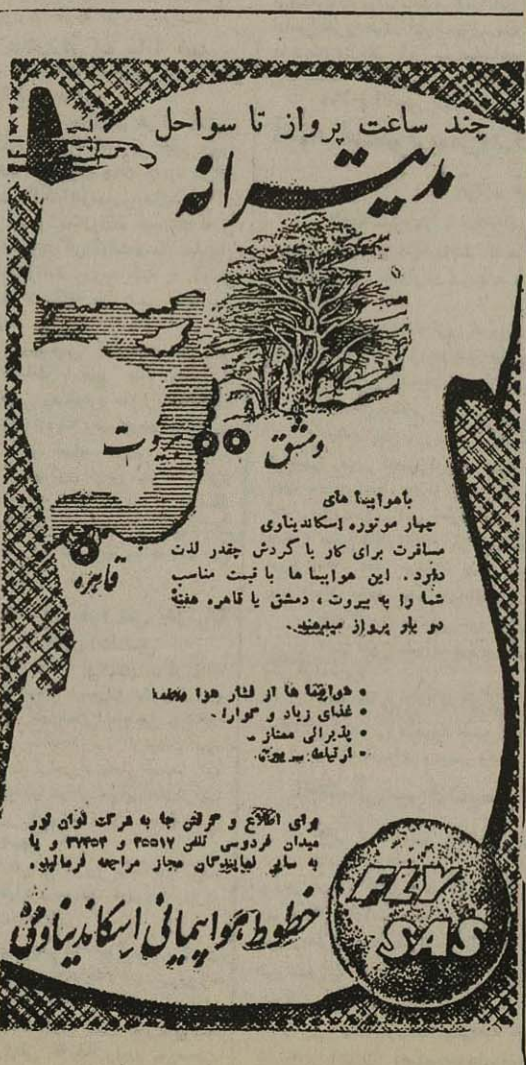 چند ساعت پرواز تا سواحل
مدیترانه
دمشق
بیروت
قاهره
باهواپیما های
چهار موتوره اسکاندیناوی
مسافرت برای کار یا گردش چقدر لذت
دارد. این هواپیما ها با قیمت مناسب
شما را به بیروت، دمشق یا قاهره هفتهٔ
دو بار پرواز میدهند.
• هواپیما ها از فشار هوا
• غذای زیاد و گوارا.
• پذیرائی ممتاز.
• ارتباط
برای اطلاع و گرفتن جا به شرکت لوان تور
میدان فردوسی تلفن ۳۵۵۱۷ و ۳۷۴۵۴ و یا
به سایر نمایندگان مجاز مراجعه فرمائید.
خطوط هواپیمائی اسکاندیناوی
FLY
SAS